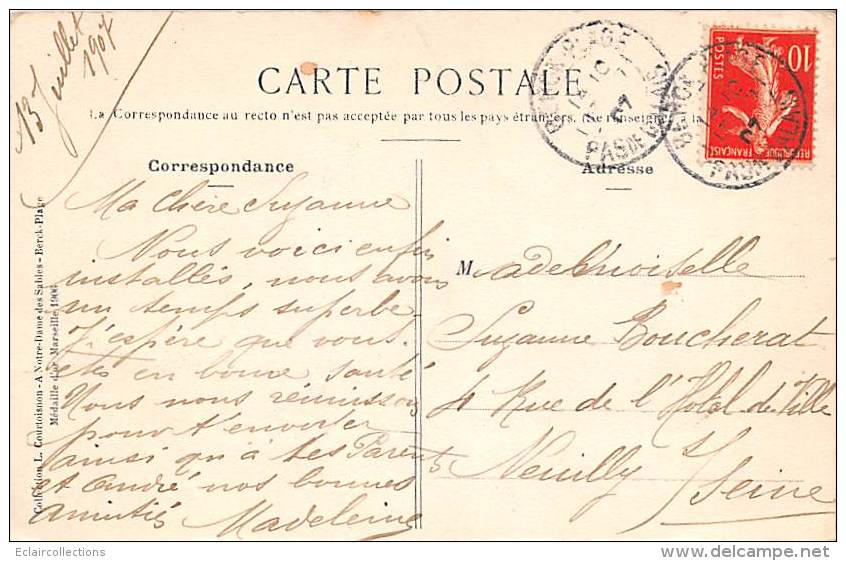 13 Juillet
1907
CARTE POSTALE
La Correspondance au recto n'est pas acceptée par tous les pays étrangers. (Se renseigner à la
BERCK-PLAGE
PAS DE CALAIS
10
POSTES
REPUBLIQUE FRANÇAISE
Correspondance
Adresse
Ma chère Suzanne
Nous voici enfin
installés, nous avons
un temps superbe.
J'espère que vous
êtes en bonne santé
Nous nous réunissons
pour t'envoyer
ainsi qu'à tes Parents
et André nos bonnes
amitiés Madeleine
Mademoiselle
Suzanne Boucherat
4 Rue de l'Hôtel de Ville
Neuilly s/Seine
Collection L. Courtoisnon - A Notre-Dame des Sables - Berck-Plage
Médaille d'or Marseille 1906
Eclaircollections
www.delcampe.net